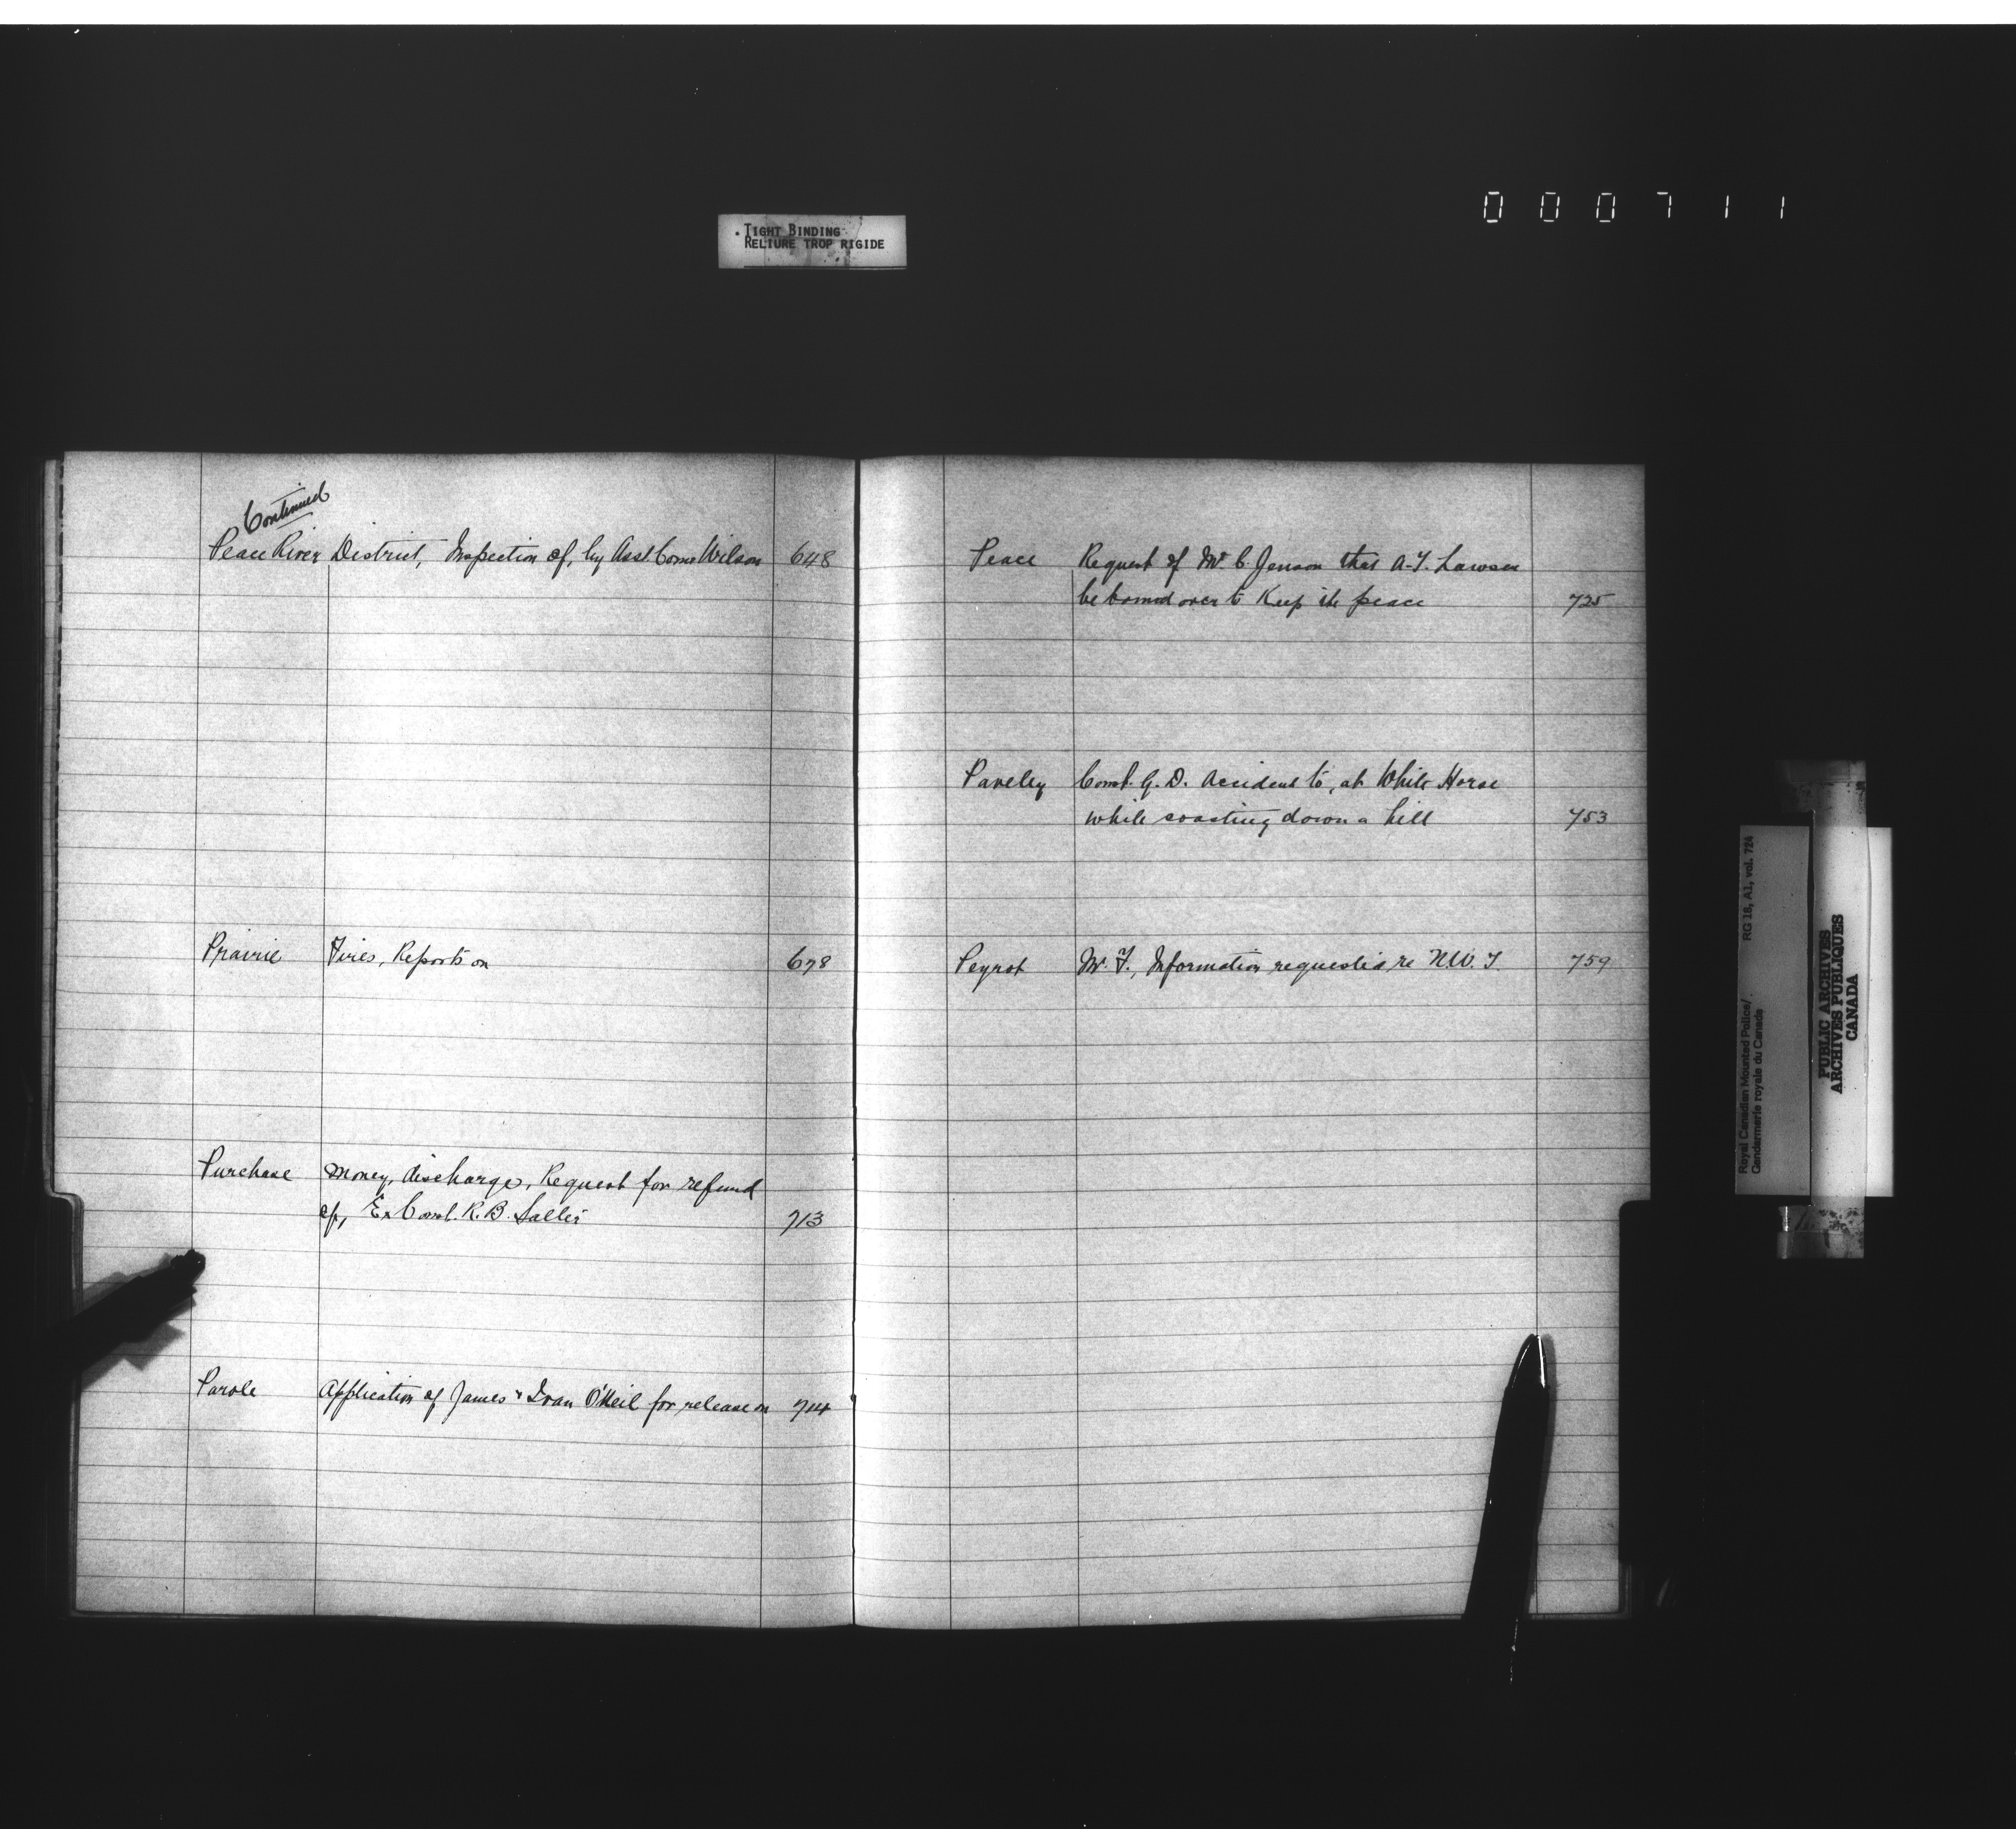 000711
Tight Binding
Reliure trop rigide
Continued
Peace River District, Inspection of, by Asst. Comr Wilson 648
Prairie Fires, Reports on 678
Purchase Money, discharge, Request for refund
of, Ex Const. R. B. 713
Parole Application of James & Ivan O'Neil for release on 714
Peace Request of Mr. C. Jenson that A. T. Lawson
be bound over to Keep the peace 725
Paveley Const. G. D. Accident to, at White Horse
while coasting down a hill 753
Peyrot Mr. F., Information requested re N.W.T. 759
Royal Canadian Mounted Police/
Gendarmerie royale du Canada
RG 18, A1, vol. 724
PUBLIC ARCHIVES
ARCHIVES PUBLIQUES
CANADA